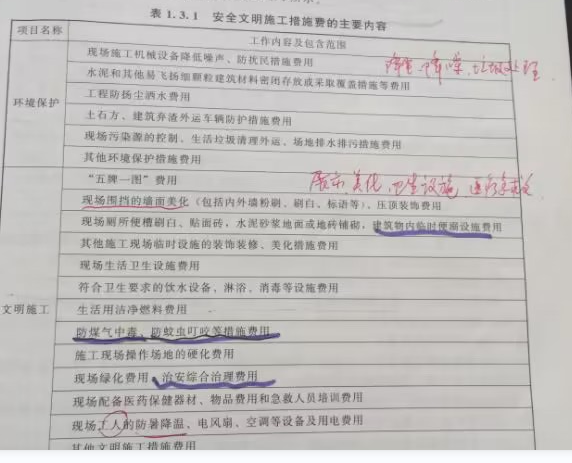 表 1.3.1 安全文明施工措施费的主要内容
项目名称
工作内容及包含范围
环境保护
现场施工机械设备降低噪声、防扰民措施费用
水泥和其他易飞扬细颗粒建筑材料密闭存放或采取覆盖措施等费用
工程防扬尘洒水费用
土石方、建筑弃渣外运车辆防护措施费用
现场污染源的控制、生活垃圾清理外运、场地排水排污措施费用
其他环境保护措施费用
降尘、降噪、垃圾处理
文明施工
“五牌一图”费用
展示、美化、卫生设施、医疗
现场围挡的墙面美化（包括内外墙粉刷、刷白、标语等）、压顶装饰费用
现场厕所便槽刷白、贴面砖，水泥砂浆地面或地砖铺砌，建筑物内临时便溺设施费用
其他施工现场临时设施的装饰装修、美化措施费用
现场生活卫生设施费用
符合卫生要求的饮水设备、淋浴、消毒等设施费用
生活用洁净燃料费用
防煤气中毒、防蚊虫叮咬等措施费用
施工现场操作场地的硬化费用
现场绿化费用、治安综合治理费用
现场配备医药保健器材、物品费用和急救人员培训费用
现场工人的防暑降温、电风扇、空调等设备及用电费用
其他文明施工措施费用